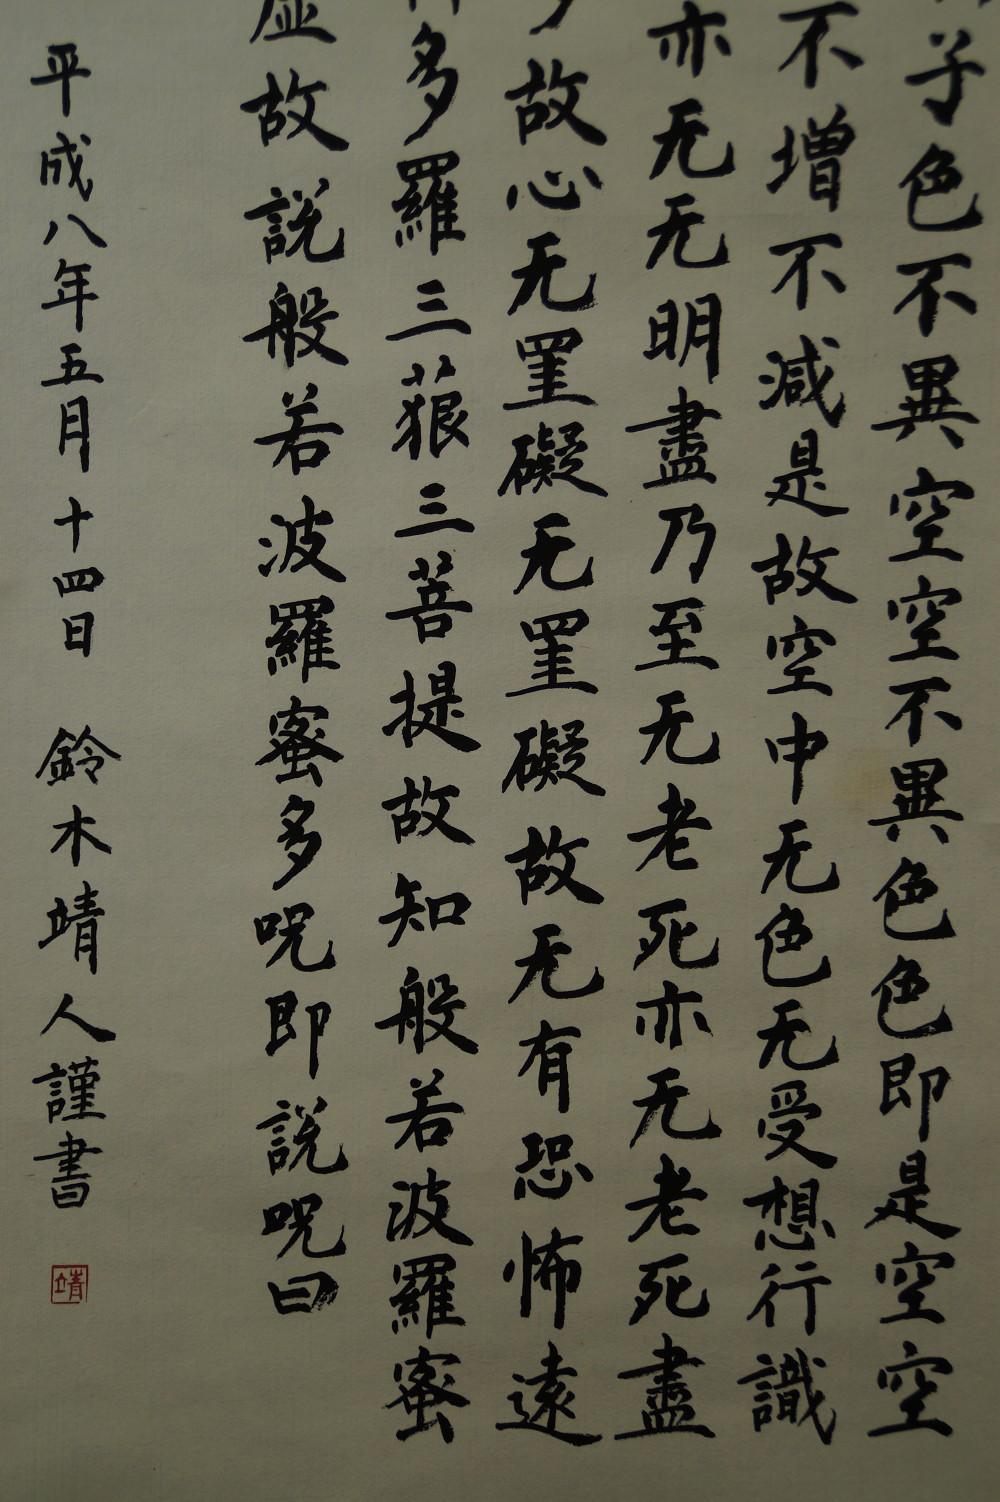 子色不異空空不異色色即是空空
不增不減是故空中无色无受想行識
亦无无明盡乃至无老死亦无老死盡
故心无罣礙无罣礙故无有恐怖遠
多羅三藐三菩提故知般若波羅蜜
虛故説般若波羅蜜多呪即説呪曰
平成八年五月十四日 鈴木靖人謹書
靖